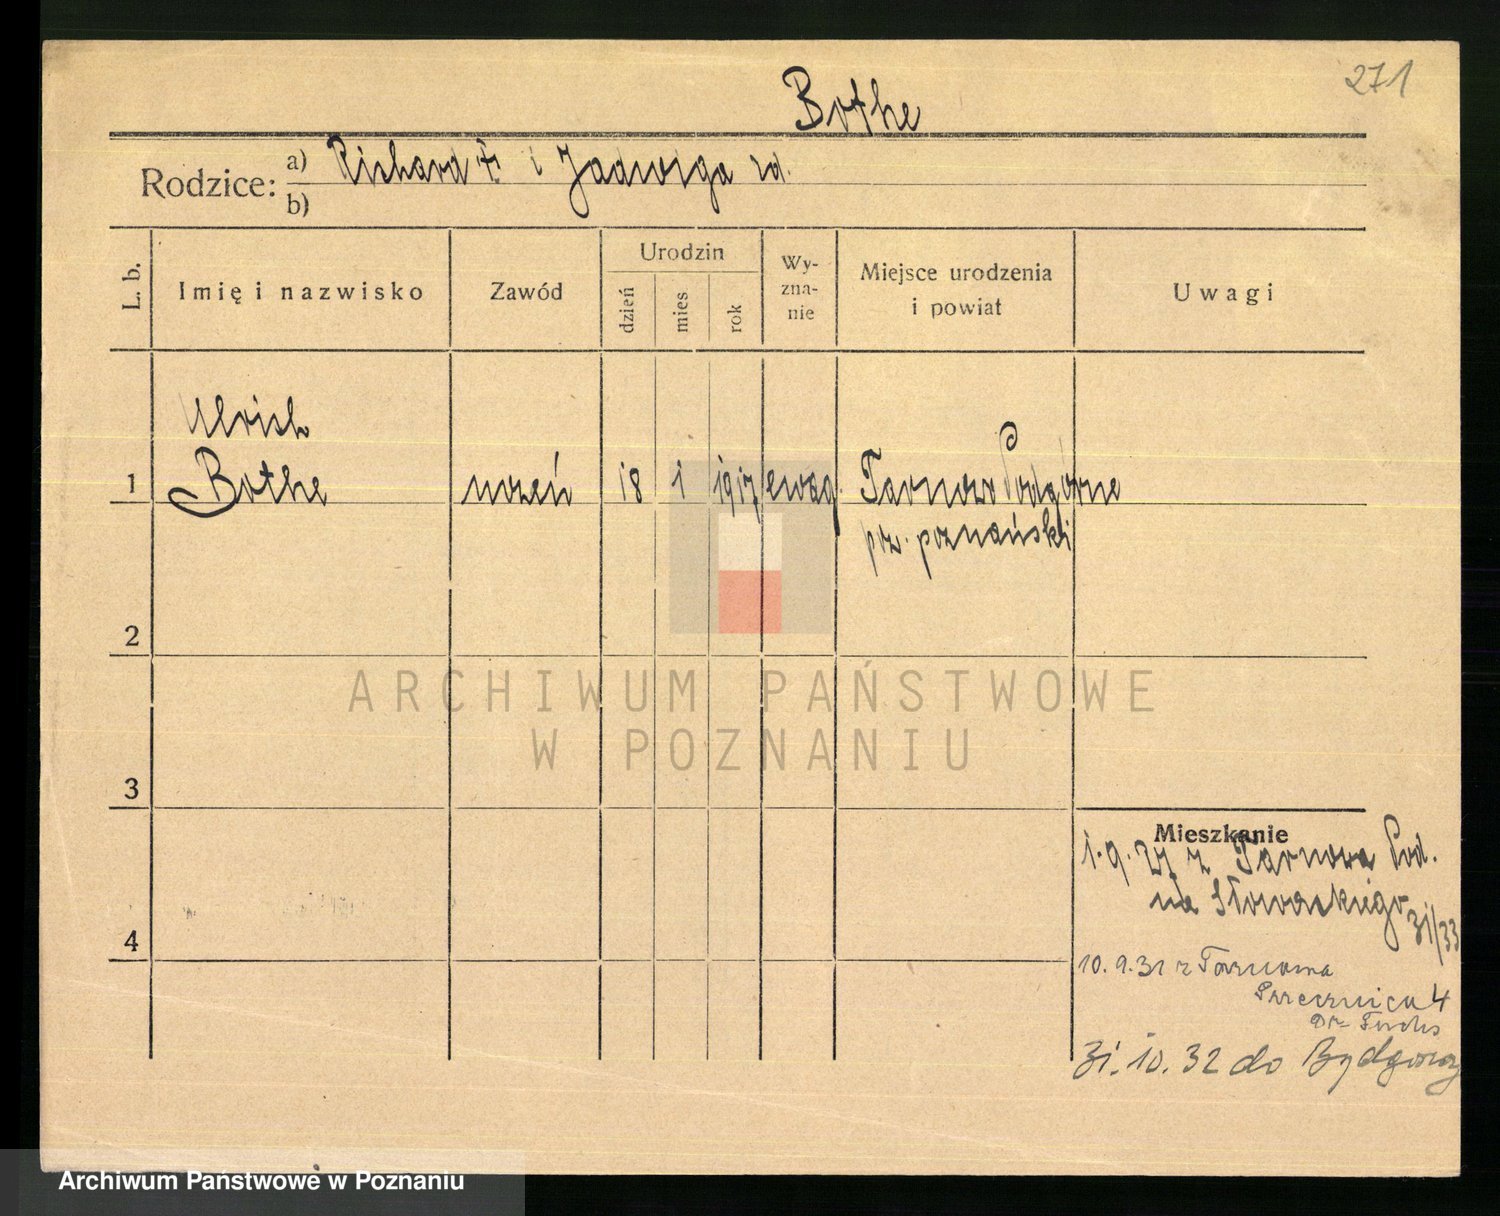 271
Bothe
Rodzice: a) Richard F. i Jadwiga zd.
b)
L. b. Imię i nazwisko Zawód Urodzin dzień mies rok Wy-zna-nie Miejsce urodzenia i powiat Uwagi
Ulrich
1 Bothe uczeń 18 1 1917 ewag. Tarnowo Podgórne
pow. poznański
2
ARCHIWUM PAŃSTWOWE
W POZNANIU
3
Mieszkanie
1.9.27 z Tarnowa Pod.
na Słowackiego 31/33
4
10.9.31 z Tarnowa
4
Dr. Fuchs
31.10.32 do Bydgoszczy
Archiwum Państwowe w Poznaniu